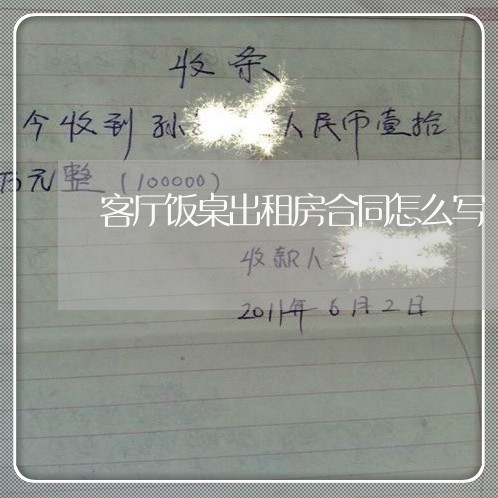 收条
今收到孙 人民币壹拾
万元整(100000)
客厅饭桌出租房合同怎么写
收款人
2011年6月2日